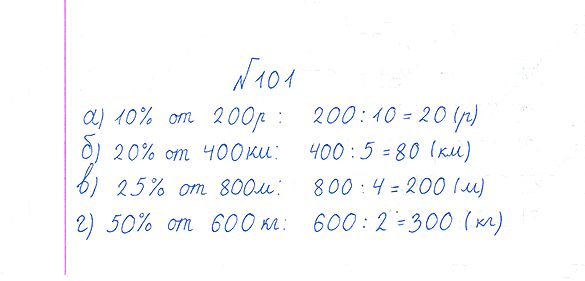 №101
а) 10% от 200р : 200 : 10 = 20 (р)
б) 20% от 400км: 400 : 5 = 80 (км)
в) 25% от 800м: 800 : 4 = 200 (м)
г) 50% от 600кг: 600 : 2 = 300 (кг)